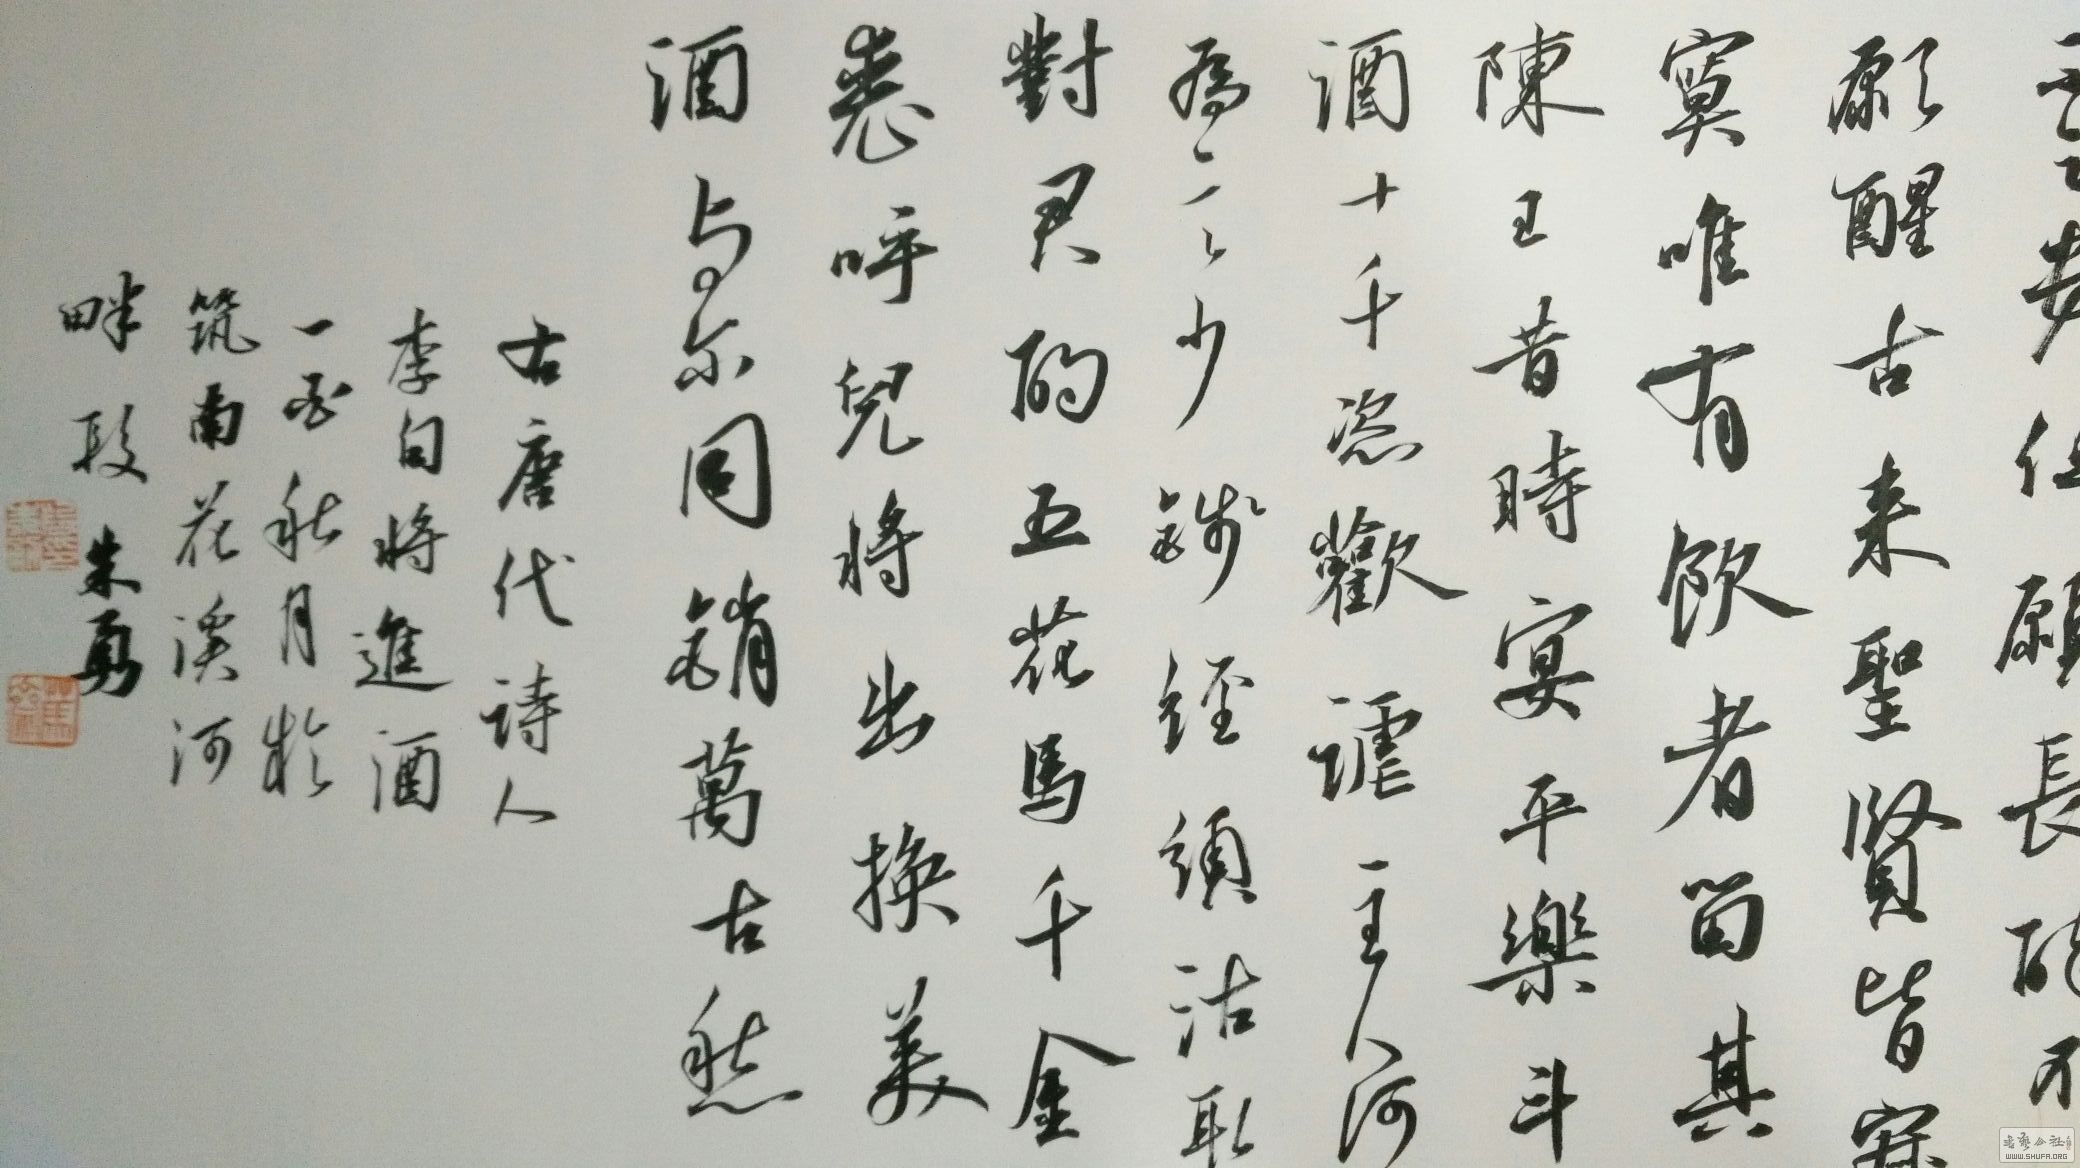 但願長醉不
願醒古来聖賢皆寂
寞唯有飲者留其
陳王昔時宴平樂斗
酒十千恣歡謔主人何
為言少錢経須沽取
對君酌五花馬千金
裘呼兒將出換美
酒与尔同銷萬古愁
古唐代詩人
李白將進酒
一首秋月於
筑南花溪河
畔段朱勇
WWW.SHUFA.ORG